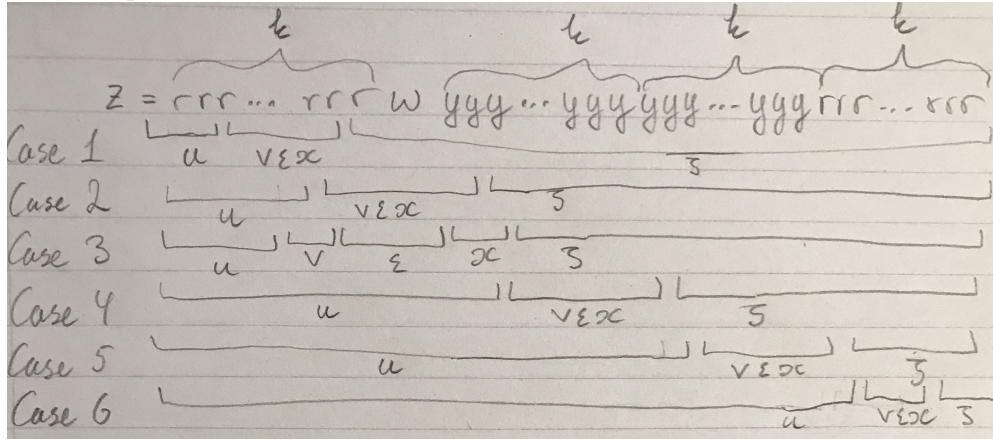 k k k k
z = rrr... rrr w yyy...yyyyyy...yyyrrr...rrr
Case 1 u vεx ζ
Case 2 u vεx ζ
Case 3 u v ε x ζ
Case 4 u vεx ζ
Case 5 u vεx ζ
Case 6 u vεx ζ